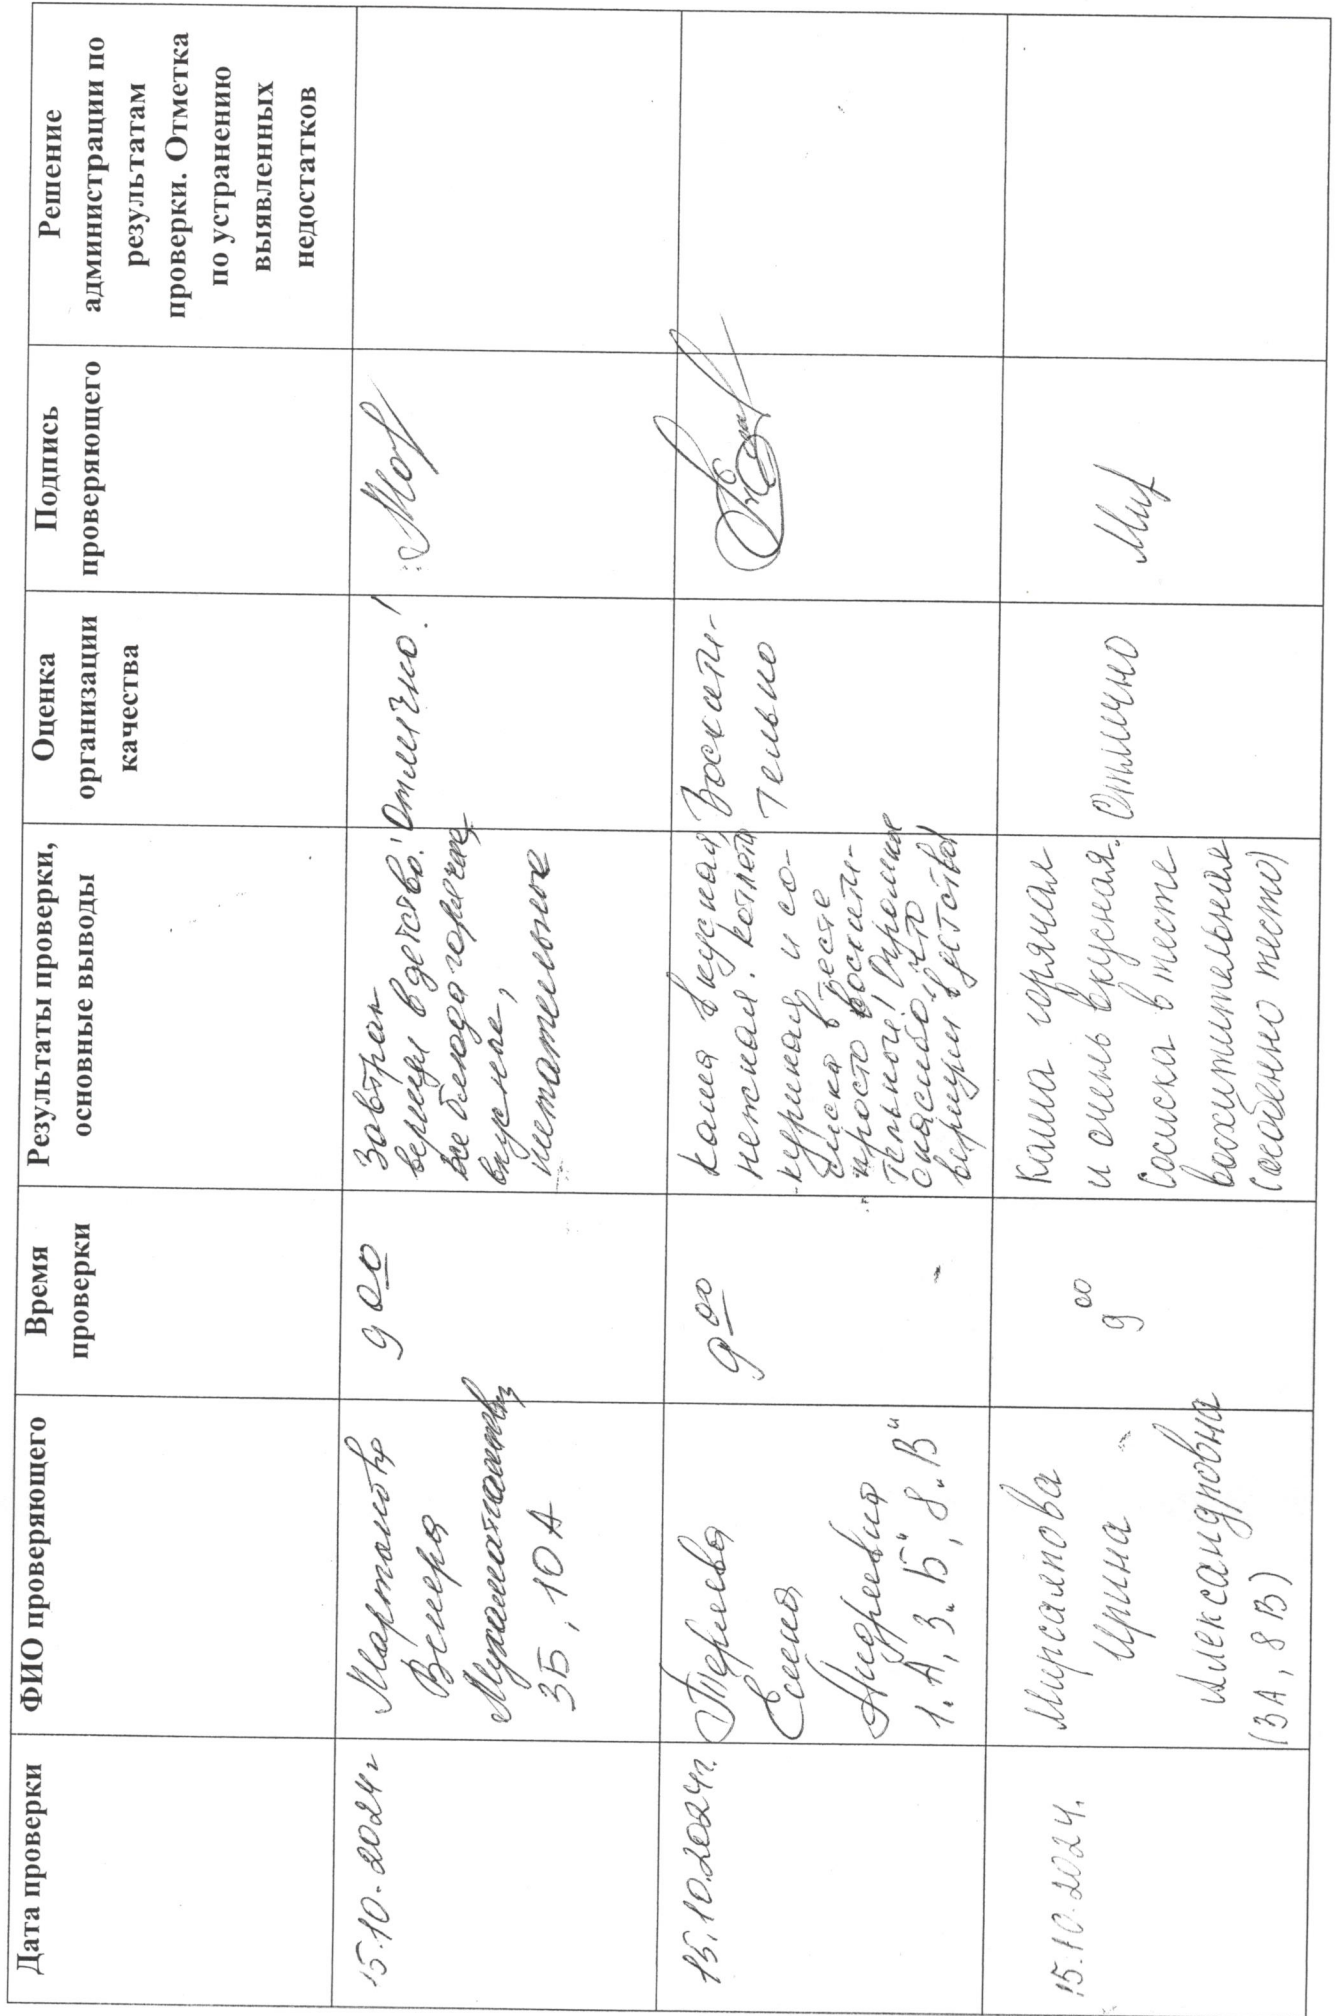 Дата проверки
ФИО проверяющего
Время
проверки
Результаты проверки,
основные выводы
Оценка
организации
качества
Подпись
проверяющего
Решение
администрации по
результатам
проверки. Отметка
по устранению
выявленных
недостатков
15.10.2024г
Венера
3Б, 10А
9 00
Завтрак
вернул в детство!
Все блюда горячие,
вкусные,
питательные
Отлично!
15.10.2024г.
Елена
Андреевна
1„А, 3„Б", 8„В"
9 00
Каша вкусная,
нежная. Котлета
куриная и со-
сиска в тесте
просто восхити-
тельные! Огромное
спасибо, что
вернули в детство!
Восхити-
тельно
15.10.2024.
Мирсаяпова
Ирина
Александровна
(3А, 8В)
9 00
Каша горячая
и очень вкусная.
Сосиска в тесте
восхитительная
(особенно тесто)
Отлично